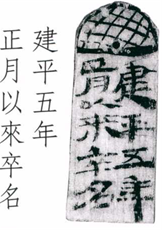 建平五年
正月以來卒名
建平五年
正月以來卒名